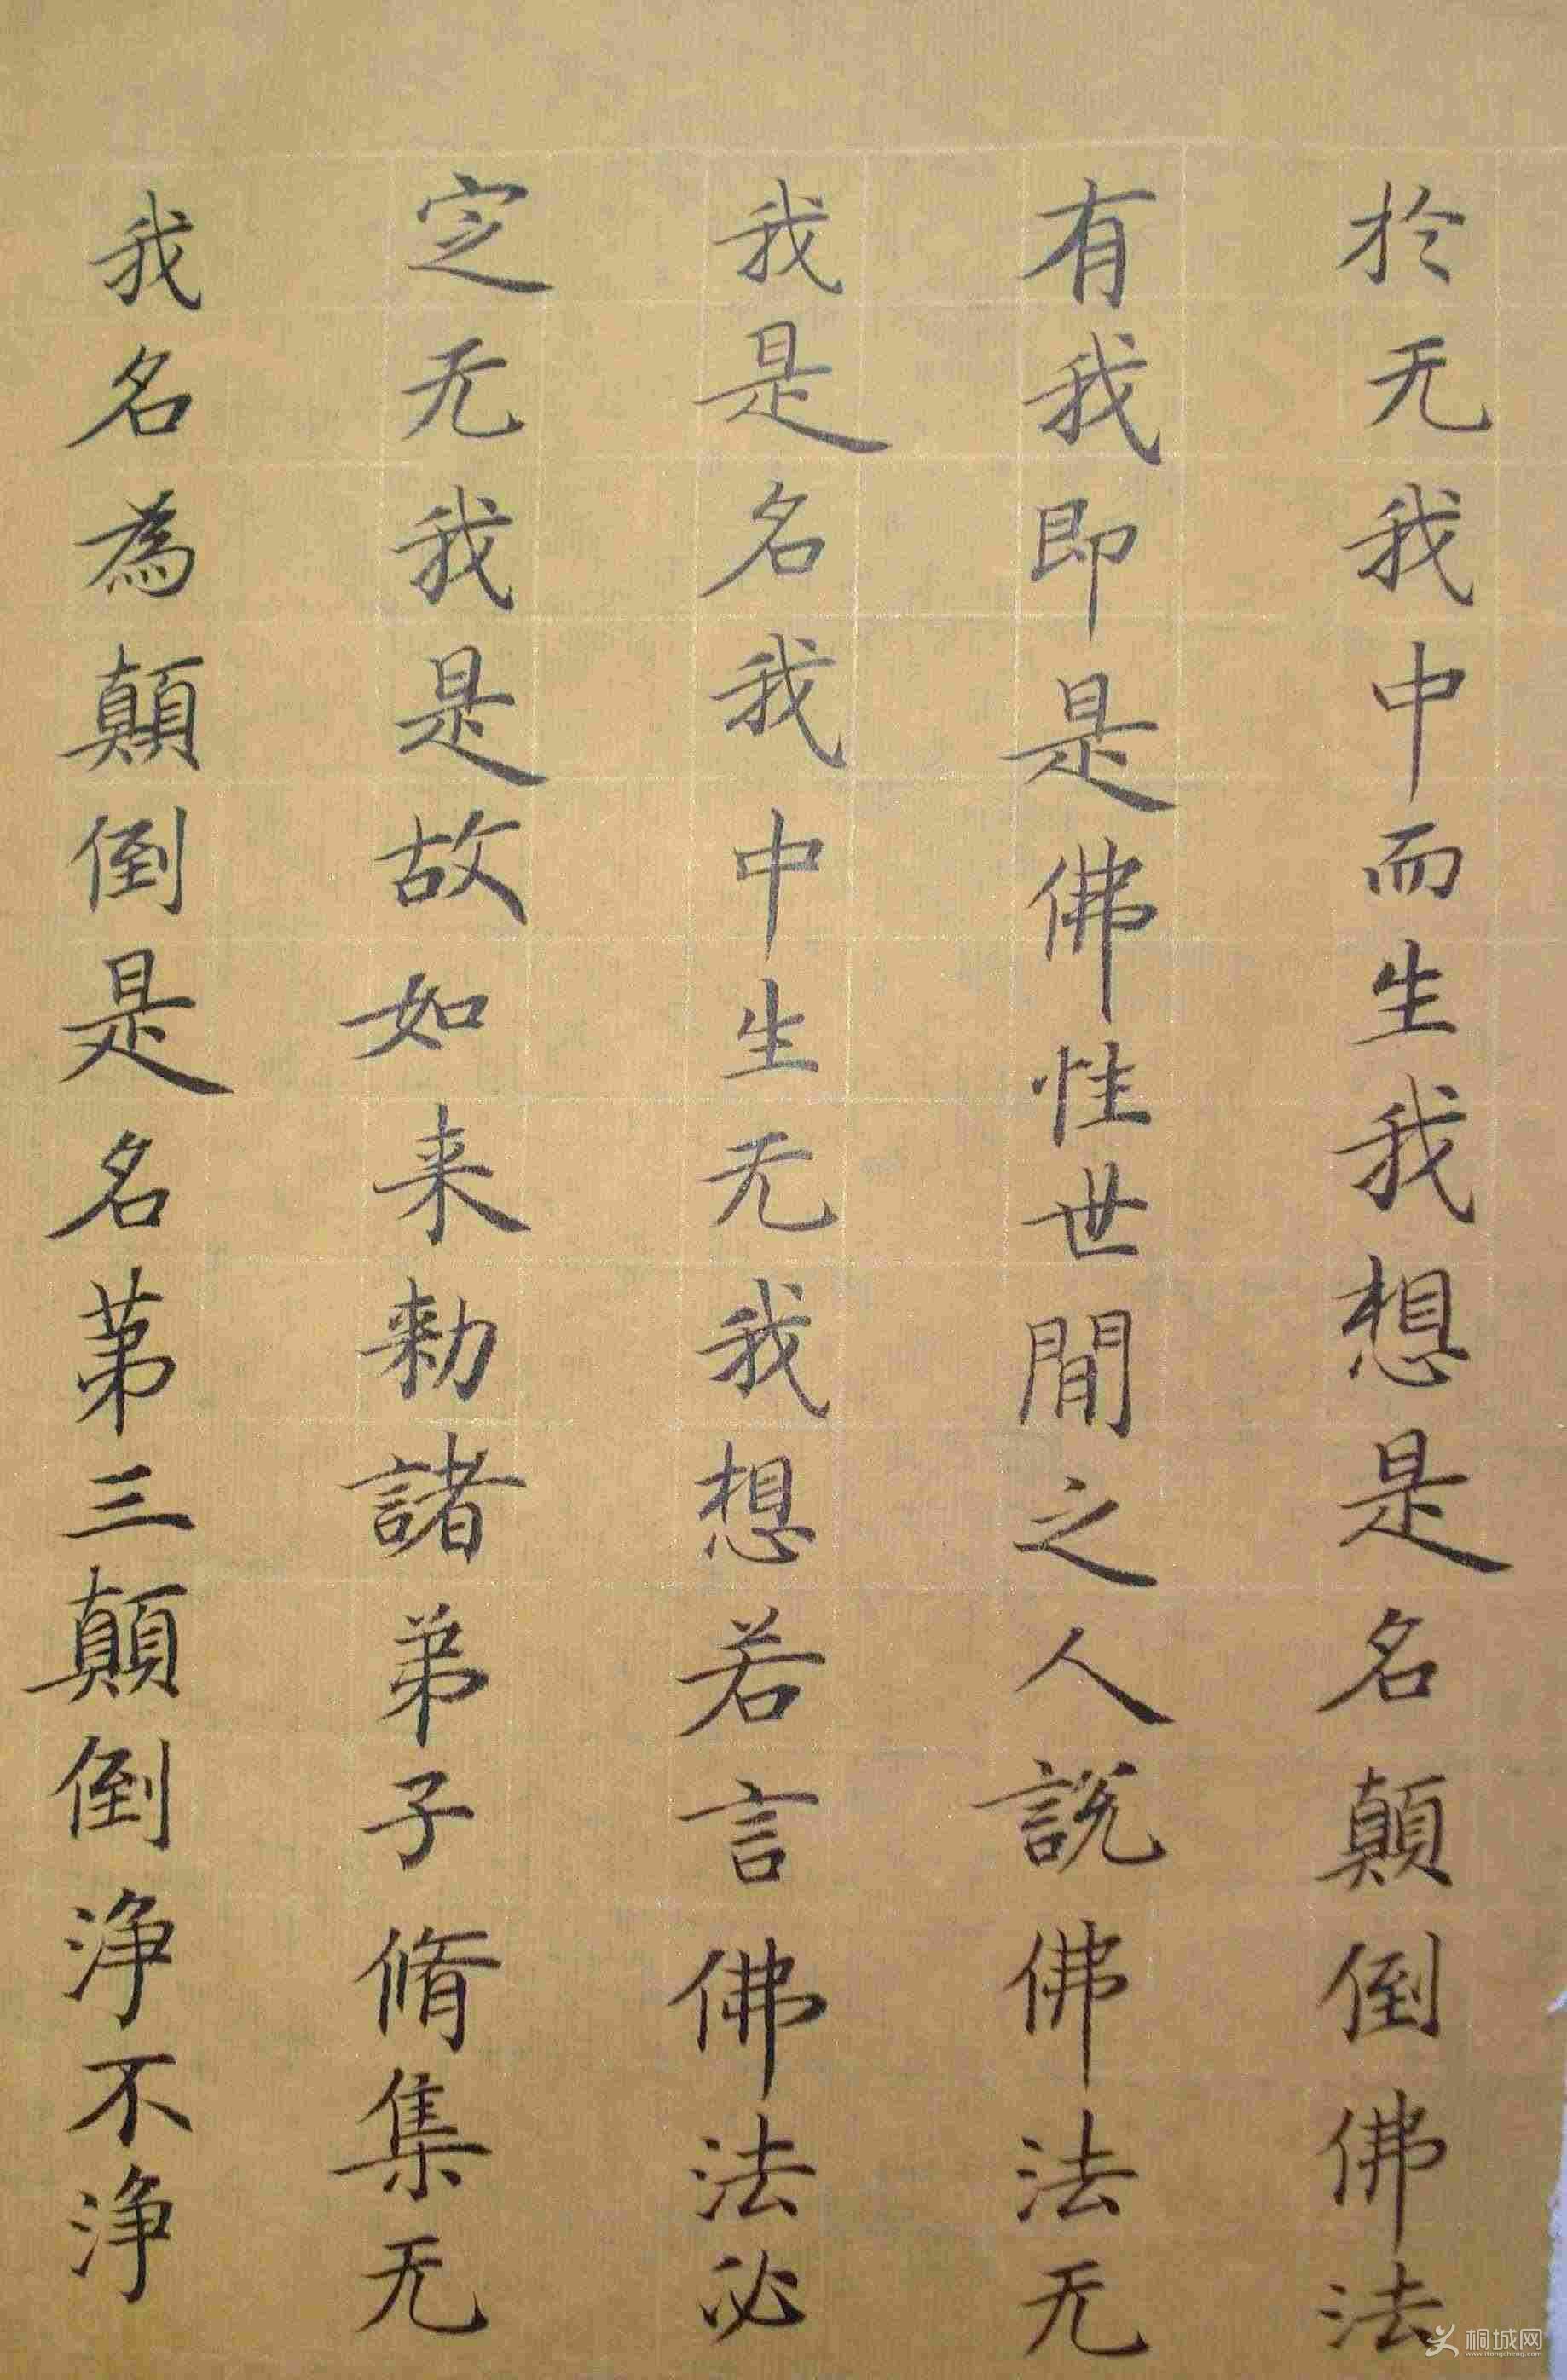 於无我中而生我想是名顛倒佛法
有我即是佛性世間之人說佛法无
我是名我中生无我想若言佛法必
定无我是故如来勑諸弟子脩集无
我名為顛倒是名苐三顛倒浄不浄
桐城网
www.itongcheng.com